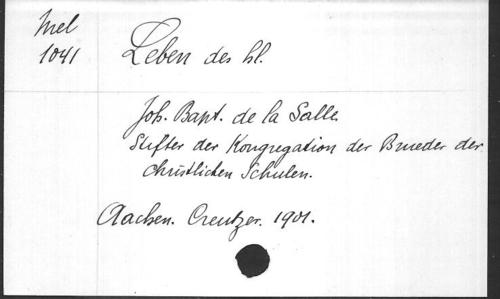 Mel
1041
Leben des hl.
Joh. Bapt. de la Salle
Stifter der Kongregation der Brueder der
christlichen Schulen.
Aachen. Creutzer. 1901.